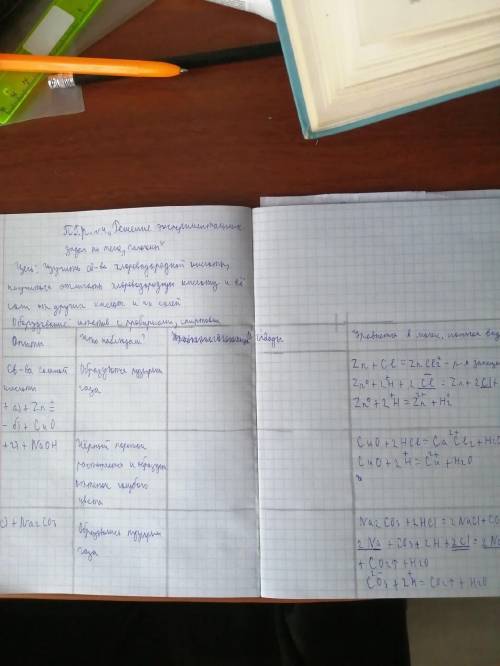 Пр.р. №4 „Решение экспериментальных
задач по теме „Галогены"
Цель: Изучить св-ва хлороводородной кислоты,
научиться отличать хлороводородную кислоту и её
соли от других кислот и их солей
Оборудование: штатив с пробирками, спиртовка
Опыты
Что наблюдаем?
Выводы
Уравнения в молек, ионном виде
Св-ва соляной
кислоты
+ а) + Zn
- б) + CuO
Образуются пузырьки
газа
Zn + Cl = ZnCl2 - р-я замещ
Zn° + 2H + 2Cl = Zn + 2Cl +
Zn° + 2H = Zn + H2
+ NaOH
Чёрный порошок
растворяется и образуется
голубого
цвета
CuO + 2HCl = CaCl2 + H2O
CuO + 2H = Cu + H2O
с) + Na2CO3
Образовались пузырьки
газа
Na2CO3 + 2HCl = 2NaCl + CO
2Na + CO3 + 2H + 2Cl = 2Na
+ CO2↑ + H2O
CO3 + 2H = CO2↑ + H2O